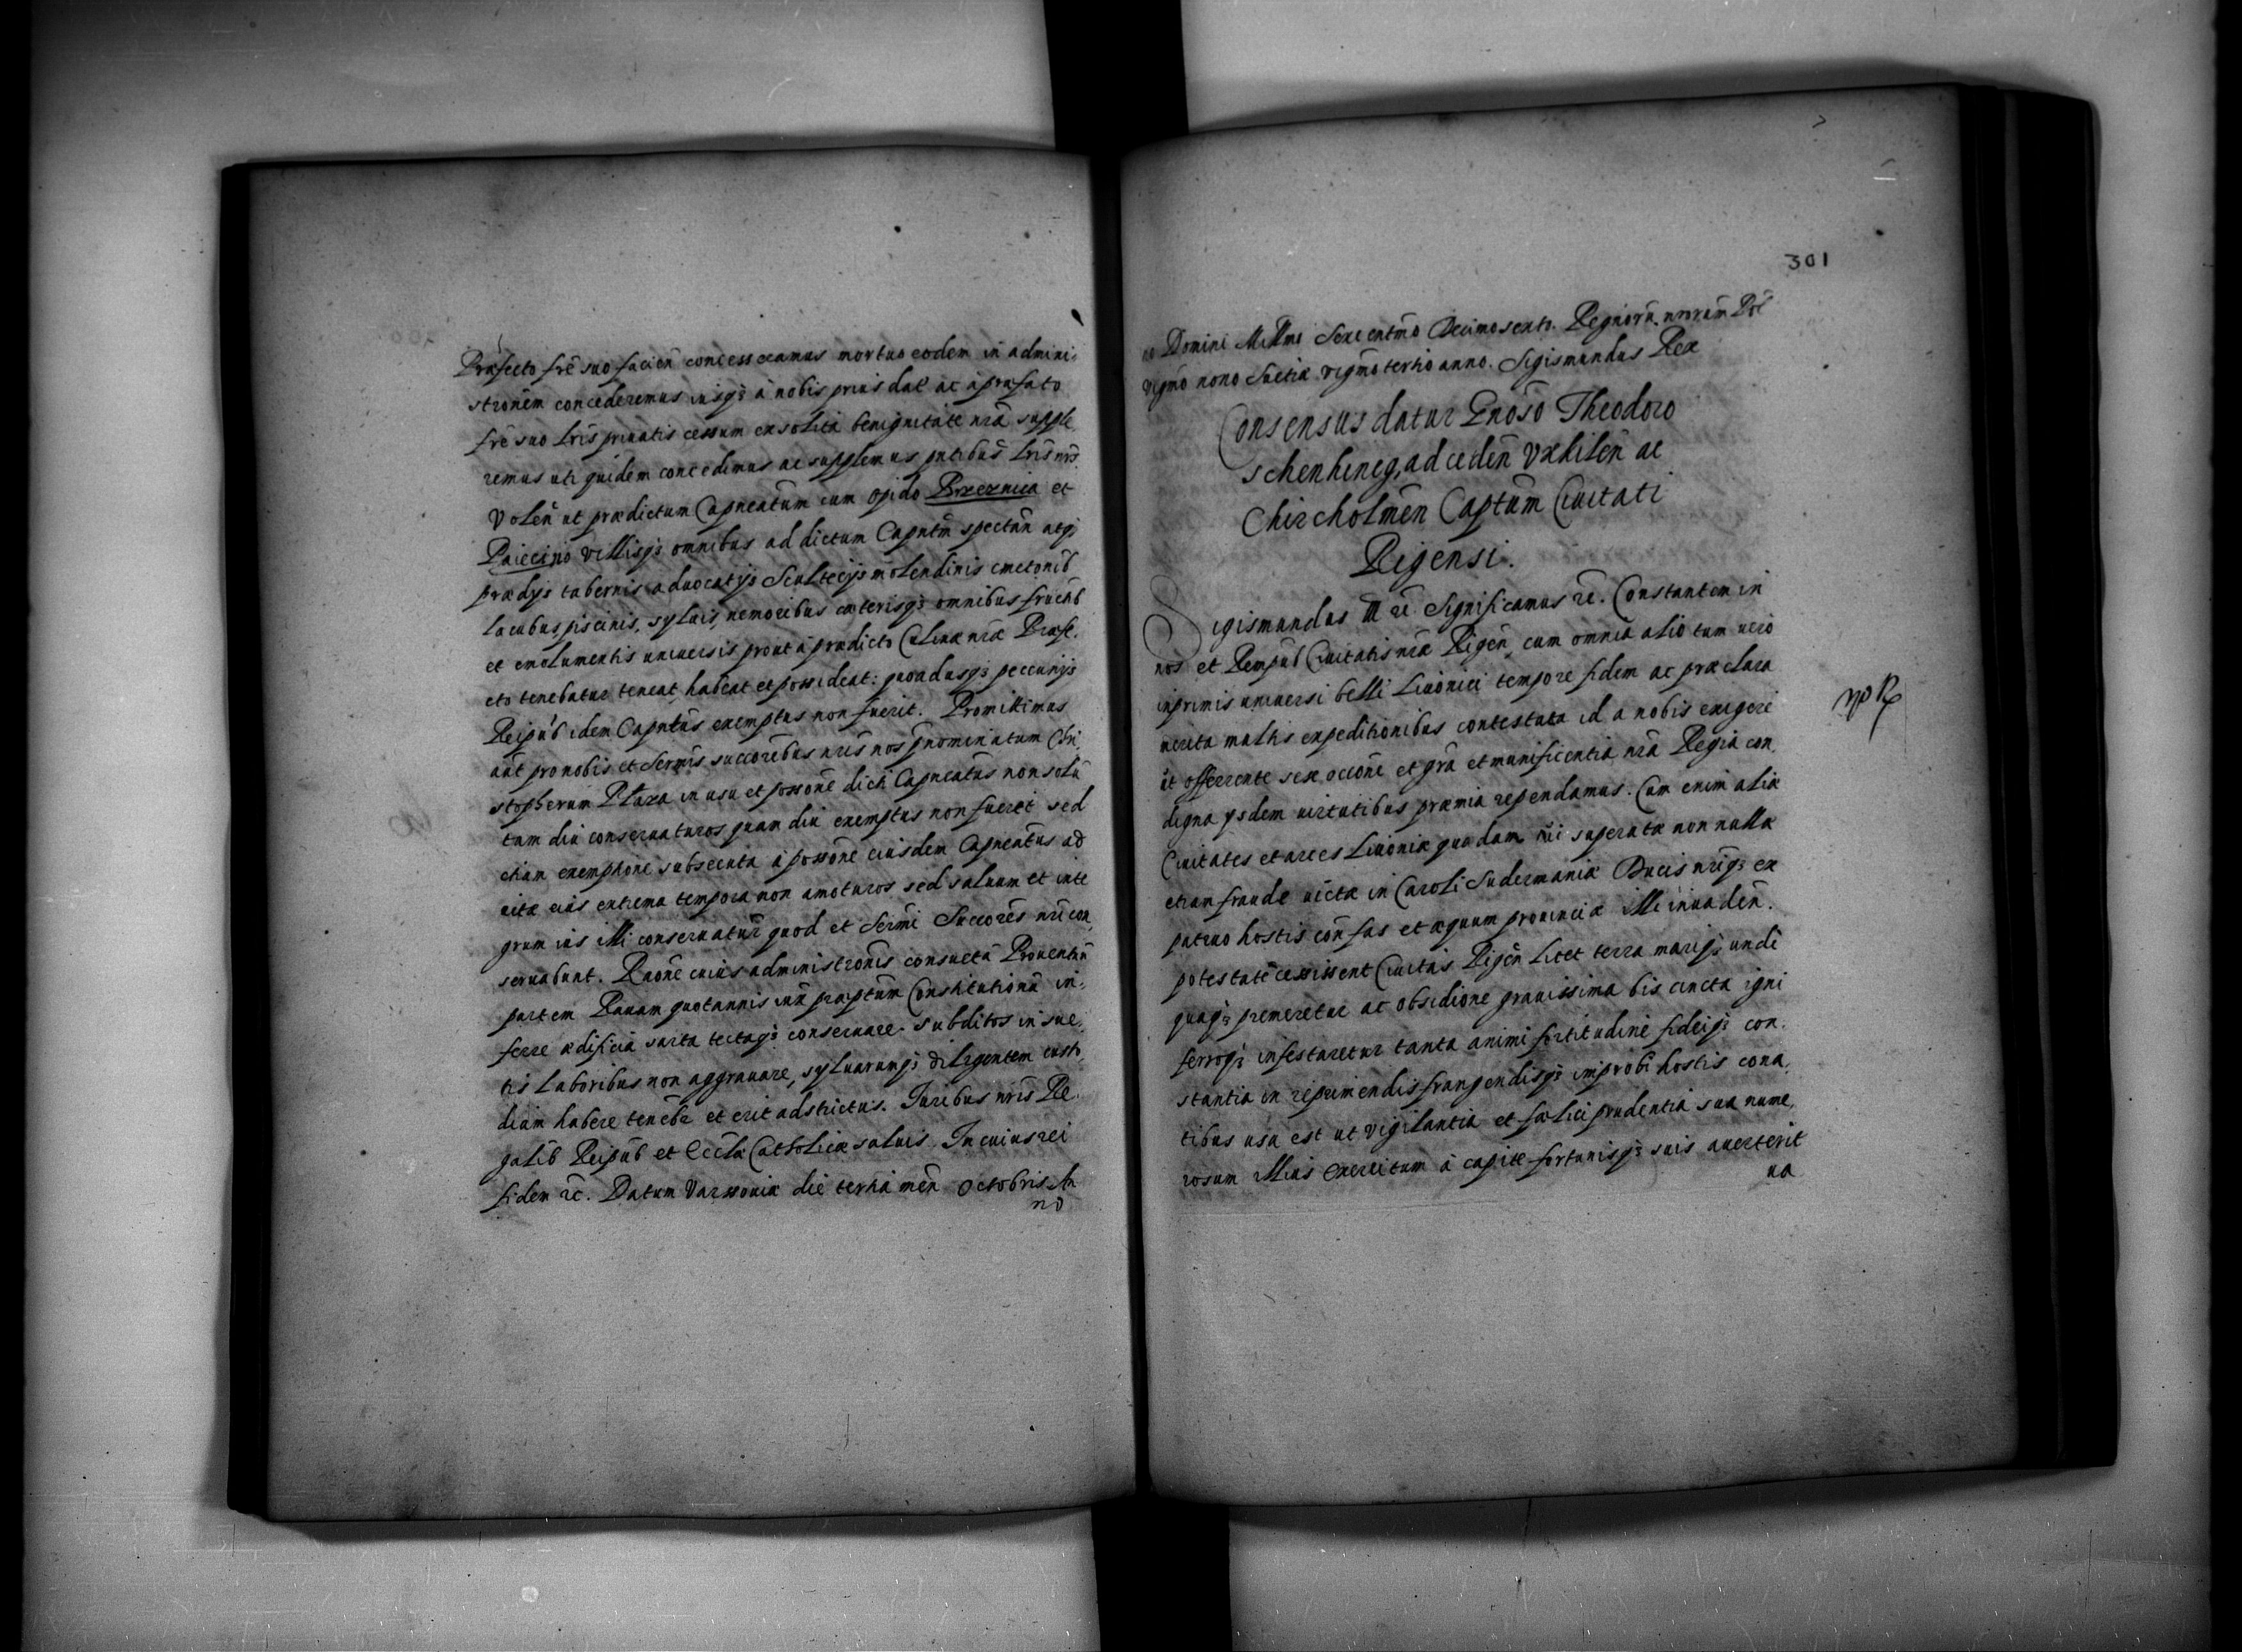 Præfecto frē suo facien̄ concesseramus mortuo eodem in admini:
strōnem concederemus iusq; à nobis prius dat̄ ac à præfato
frē suo lr̄is priuatis cessum ex solita benignitate nr̄a supple
remus uti quidem concedimus ac supplemus pn̄tibus lr̄is nr̄is
Volen̄ ut prædictum Capneatum cum opido Brzeznica et
Paieczno villisq; omnibus ad dictum Capn̄tm spectan̄ atq;
prædys tabernis aduocatys Scultecys molendinis cmetonib
lacubus piscinis, syluis, nemoribus cæterisq; omnibus fructib
et emolumentis uniuersis prout à prædicto Culinæ nr̄æ Præfe,
cto tenebatur teneat habeat et possideat: quoadusq; peccunys
Reipub idem Capn̄tus exemptus non fuerit. Promittimus
aūt pro nobis et Serm̄is succoribus nr̄is nos pn̄ominatum Chri,
stopherum Plaza in usu et possōne dicti Capneatus non solū
tam diu conseruaturos quam diu exemptus non fuerit sed
etiam exemptione subsecuta à possōne eiusdem Capneatus ad
vitæ eius extrema tempora non amoturos sed saluum et inte
grum ius illi conseruatur̄ quod et Serm̄i Succorēs nr̄i con,
seruabunt. Raōne cuius administrōnis consueta Prouentuū
partem Rauam quotannis iuxa præptum Constitutionū in:
ferre ædificia sarta tectaq; conseruare. subditos insue,
tis laboribus non aggrauare, syluarumq; diligentem custo,
diam habere tenebr̄ et erit adstrictus. Iuribus nr̄is Re,
galib Reipub et Eccl̄æ Catholicæ saluis. In cuius rei
fidem rc̄. Datum Varssouiæ die tertia men̄ Octobris An
no
301
no Domini Millmo Sexcentm̄o Decimosexto. Regnorū nrorum Pol̄
vigm̄o nono Suetiæ vigm̄o tertio anno. Sigismundus Rex
Consensus datur Gnōso Theodoro
schenking, ad ceden̄ Vxkilen̄ ac
Chircholmēn Captūm Ciuitati
Rigensi.
Sigismundus III rc̄ Significamus rc̄. Constantem in
nos et Rempub Ciuitatis nr̄æ Rigen̄, cum omnia alio tum uero
inprimis uniuersi belli Liuonici tempore fidem ac præclara
merita multis expeditionibus contestata id a nobis exigere
ut offerrente sese occōne et gr̄a et munificentia nr̄a Regia con,
digna ysdem uirtutibus præmia rependamus. Cum enim aliæ
Ciuitates et arces Liuoniæ quædam ui superatæ non nullæ
etiam fraude uictæ in Caroli Sudermaniæ Ducis nr̄iq; ex
patruo hostis con̄ fas et æquum prouinciæ illi inuaden̄.
potestatē cessissent Ciuitas Rigen̄ licet terra mariq; undi
quaq; premeretur ac obsidione grauissima bis cincta igni
ferroq; infestaretur tanta animi fortitudine fideiq; con,
stantia in reprimendis frangendisq; improbi hostis cona,
tibus usa est ut vigilantia et fælici prudentia sua nume,
rosum illius exercitum à capite fortunisq; suis auerterit
ua